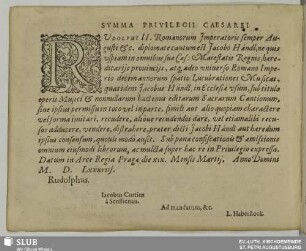 SVMMA PRIVILEGII CAESAREI
RUDOLPHI II. Romanorum Imperatoris semper Au-
gusti &c. diplomate cautum est Iacobo Händl, ne quis
uspiam in omnibus suæ Cæs. Maiestatis Regnis, hære-
ditarijs prouincijs, atq; adeo vniuerso Romano Impe-
rio decem annorum spatio Lucubrationes Musicas,
quas idem Iacobus Händl, in Ecclesiæ vsum, sub titulo
operis Musici & nonnullarum hactenus editarum Sacrarum Cantionum,
siue ipsas permissim in toto vel in parte, simili aut alio quopiam charactere
vel forma imitari, recudere, aliove recudendas dare, vel etiam alibi recu-
sas adducere, vendere, distrahere, præter dicti Iacobi Händl aut hæredum
ipsius consensum, quouis modo ausit. Sub pœna confiscationis & amissionis
omnium eiusmodi librorum, ac mulcta super hac re in Priuilegio expressa.
Datum in Arce Regia Pragæ die Mensis Martij, Anno Domini
M. D. LXXXVIII.
Rudolphus.
Iacobus Curtius
à Senftenau.
Ad mandatum, &c.
L. Haberstock.
SLUB
Wir führen Wissen.
EV.-LUTH. KIRCHGEMEINDE
ST. PETRI AUGUSTUSBURG